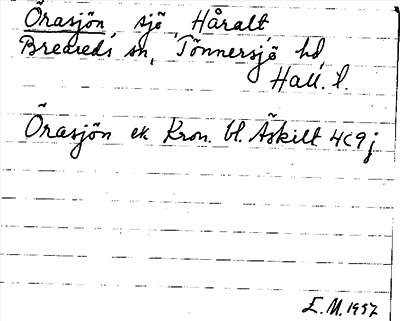 Örasjön, sjö, Håralt,
Breareds sn, Tönnersjö hd,
Hall. l.
Örasjön ek Kron. bl. Äskilt 4C9j
E.M. 1957